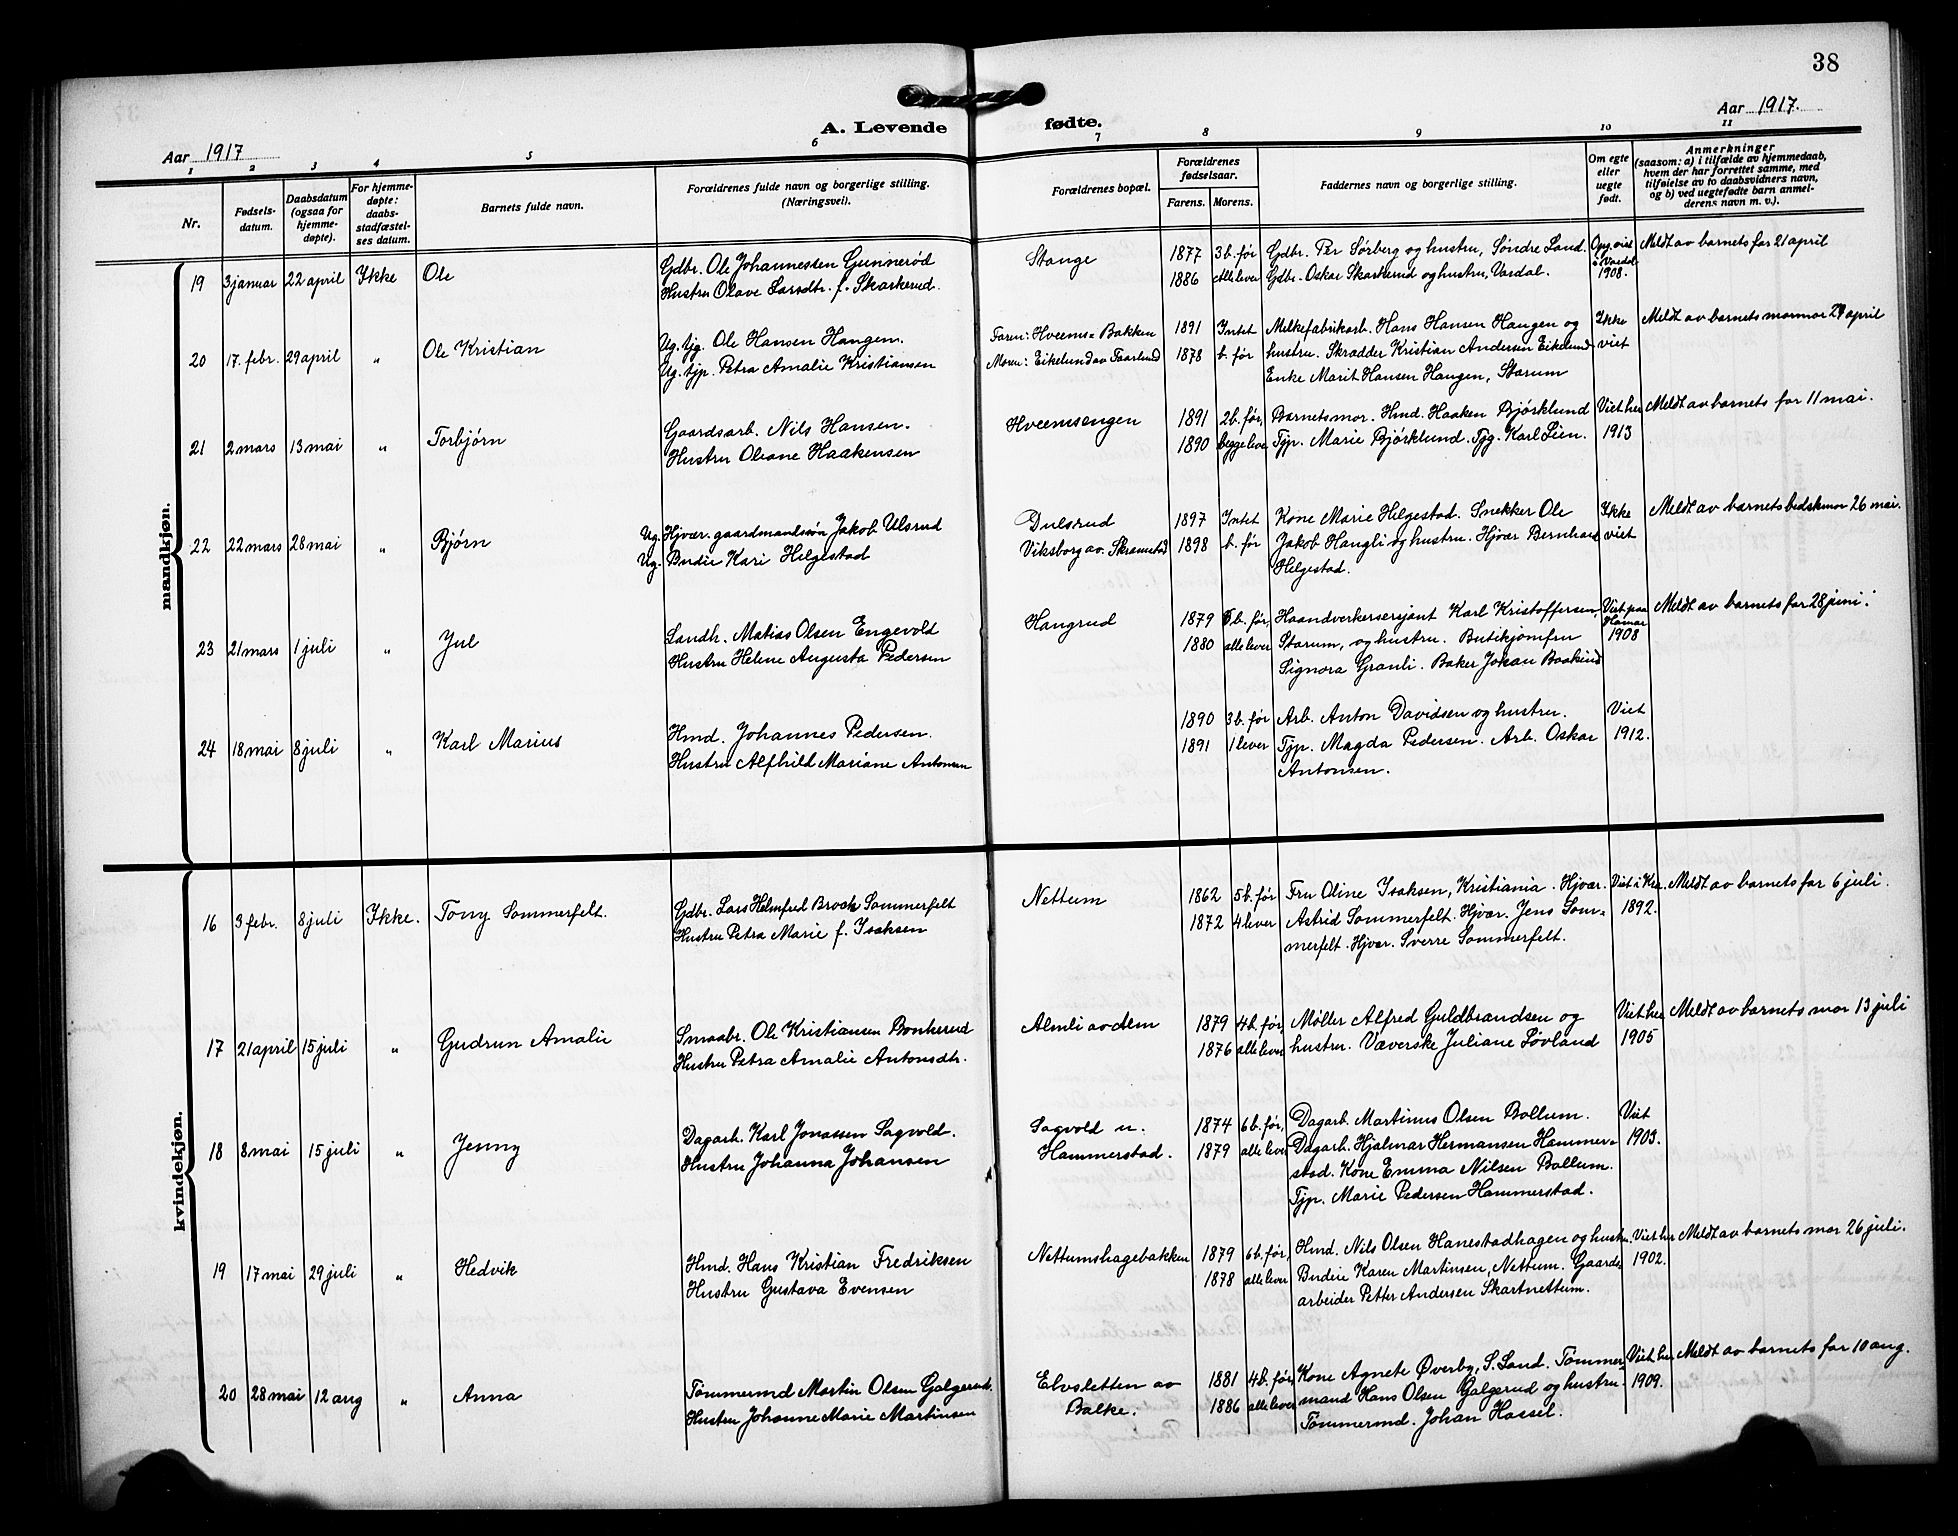 38
A. Levende fødte.
Aar 1917
Aar 1917.
1 2 3 4 5 6 7 8 9 10 11
Nr.
Fødselsdatum.
Daabsdatum (ogsaa for hjemmedøpte).
For hjemmedøpte: daabsstadfæstelses datum.
Barnets fulde navn.
Forældrenes fulde navn og borgerlige stilling. (Næringsvei).
Forældrenes bopæl.
Forældrenes fødselsaar.
Farens. Morens.
Faddernes navn og borgerlige stilling.
Om egte eller uegte født.
Anmerkninger
(saasom: a) i tilfælde av hjemmedaab,
hvem der har forrettet samme, med
tilføielse av to daabsvidners navn,
og b) ved uegtefødte barn anmel-
derens navn m. v.).
mandkjøn.
19 3 januar 22 april Ikke Ole
Gdbr. Ole Johannessen Gunnerød
Hustru Olave Larsdtr. f. Skarkerud.
Stange
1877 3 b. før
1886 alle lever
Gdbr. Per Sørberg og hustru, Søndre Land.
Gdbr. Oskar Skarkerud og hustru, Vardal.
i Vardal 1908.
Meldt av barnets far 21 april
20 17. febr. 29 april " Ole Kristian
Ug. tjg. Ole Hansen Haugen.
Ug. tjp. Petra Amalie Kristiansen
Faren: Hveems-Bakken
Moren: Eikelund av Faarlund
1891 Intet
1878 b. før
Melkefabrikarb. Hans Hansen Haugen og
hustru. Skrædder Kristian Andersen Eikelund
Enke Marit Hansen Haugen, Starum
Ikke viet
Meldt av barnets mormor 29 april
21 2 mars 13 mai " Torbjørn
Gaardsarb. Nils Hansen.
Hustru Oleane Haakensen
Hveemsengen
1891 2 b. før,
1890 begge lever
Barnets mor. Hmd. Haaken Bjørklund
Tjp. Marie Bjørklund. Tjg. Karl Lien.
Viet her 1913
Meldt av barnets far 11 mai.
22 22 mars 28 mai " Bjørn
Ug. Hjvær. gaardmandssøn Jakob Ulsrud
Ug. Budeie Kari Helgestad
Dulsrud
Viksborg av. Skramstad
1897 Intet
1898 b. før
Kone Marie Helgestad. Snekker Ole
Jakob Haugli og hustru. Hjvær Bernhard
Helgestad.
Ikke viet
Meldt av barnets bedstemor 26 mai.
23 21 mars 1 juli " Jul
Landh. Matias Olsen Engevold
Hustru Helene Augusta Pedersen
Haugrud
1879 5 b. før,
1880 alle lever
Haandverkersersjant Karl Kristoffersen,
Starum, og hustru. Butikjomfru
Signora Granli. Baker Johan Baakind
Viet paa Hamar 1908
Meldt av barnets far 28 juni.
24 18 mai 8 juli " Karl Marius
Hmd. Johannes Pedersen.
Hustru Alfhild Mariane Antonsen
1890 3 b. før
1891 1 lever
Arb. Anton Davidsen og hustru.
Tjp. Magda Pedersen. Arb. Oskar
Antonsen.
Viet 1912.
kvindekjøn.
16 3 febr. 8 juli Ikke. Tony Sommerfelt.
Gdbr. Lars Helmfred Brock Sommerfelt
Hustru Petra Marie f. Isaksen
Nettum
1862 5 b. før
1872 4 lever
Fru Oline Isaksen, Kristiania. Hjvær.
Astrid Sommerfelt. Hjvær. Jens Som-
merfelt. Hjvær. Sverre Sommerfelt.
Viet i Kra 1892.
Meldt av barnets far 6 juli.
17 21 april 15 juli " Gudrun Amalie
Smaabr. Ole Kristiansen Bonkerud
Hustru Petra Amalie Antonsdtr.
Almli av dem
1879 4 b. før
1876 alle lever
Møller Alfred Guldbrandsen og
hustru. Væverske Juliane Løvland
Viet her 1905
Meldt av barnets mor 13 juli
18 8 mai 15 juli " Jenny
Dagarb. Karl Jonassen Sagvold.
Hustru Johanna Johansen
Sagvold u.
Hammerstad.
1874 6 b. før,
1879 alle lever
Dagarb. Martinus Olsen Bollum.
Dagarb. Hjalmar Hermansen Hammer-
stad. Kone Emma Nilsen Bollum.
Tjp. Marie Pedersen Hammerstad.
Viet 1903.
19 17 mai 29 juli " Hedvik
Hmd. Hans Kristian Fredriksen
Hustru Gustava Evensen
Nettumshagebakken
1879 6 b. før,
1878 alle lever
Hmd. Nils Olsen Hanestadhagen og hustru.
Budeie Karen Martinsen, Nettum. Gaards-
arbeider Petter Andersen Skartnettum.
Viet her 1902.
Meldt av barnets mor 26 juli.
20 28 mai 12 aug " Anna
Tømmermd Martin Olsen Galgerud.
Hustru Johanne Marie Martinsen
Elvsletten av
Balke.
1881 4 b. før
1886 alle lever
Kone Agnete Øverby, S. Land. Tømmer-
mand Hans Olsen Galgerud og hustru
Tømmermd. Johan Hassel.
Viet her 1909.
Meldt av barnets far 10 aug.